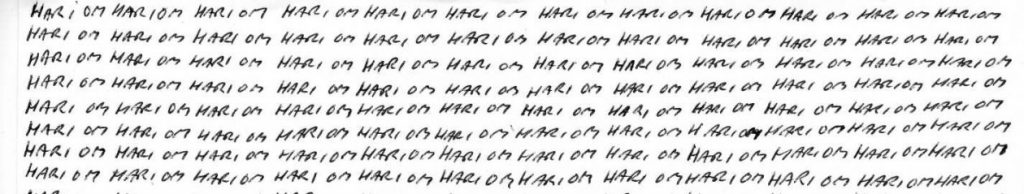 HARI OM HARI OM HARI OM HARI OM HARI OM HARI OM HARI OM HARI OM HARI OM HARI OM HARI OM HARI OM
HARI OM HARI OM HARI OM HARI OM HARI OM HARI OM HARI OM HARI OM HARI OM HARI OM HARI OM HARI OM
HARI OM HARI OM HARI OM HARI OM HARI OM HARI OM HARI OM HARI OM HARI OM HARI OM HARI OM HARI OM
HARI OM HARI OM HARI OM HARI OM HARI OM HARI OM HARI OM HARI OM HARI OM HARI OM HARI OM HARI OM
HARI OM HARI OM HARI OM HARI OM HARI OM HARI OM HARI OM HARI OM HARI OM HARI OM HARI OM HARI OM
HARI OM HARI OM HARI OM HARI OM HARI OM HARI OM HARI OM HARI OM HARI OM HARI OM HARI OM HARI OM
HARI OM HARI OM HARI OM HARI OM HARI OM HARI OM HARI OM HARI OM HARI OM HARI OM HARI OM HARI OM
HARI OM HARI OM HARI OM HARI OM HARI OM HARI OM HARI OM HARI OM HARI OM HARI OM HARI OM HARI OM